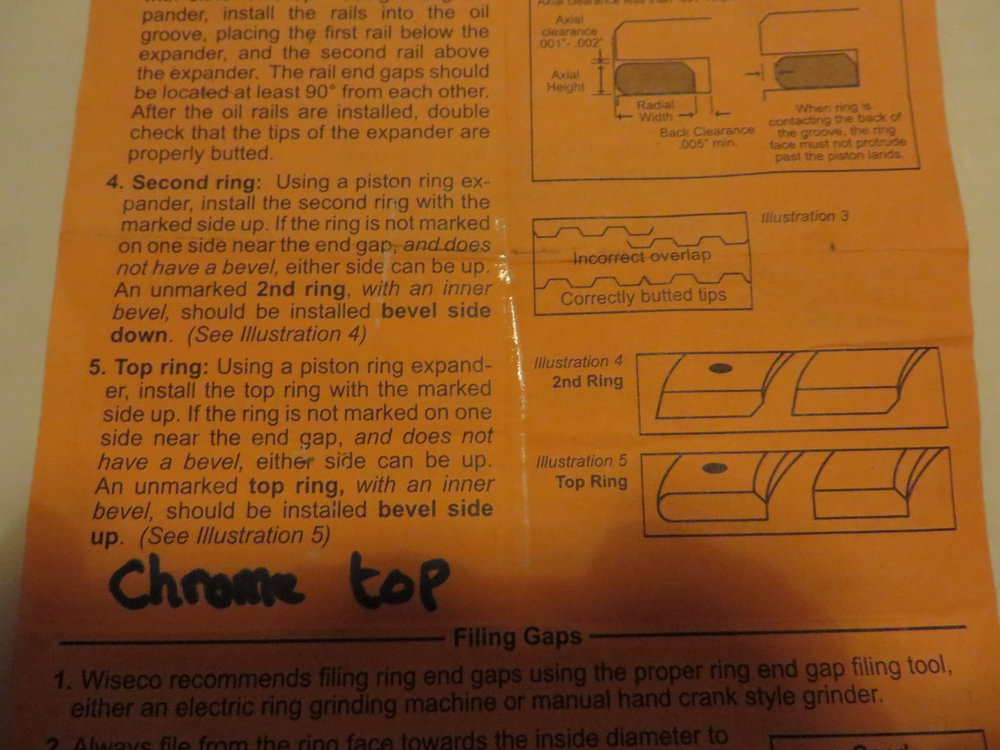 pander, install the rails into the oil
groove, placing the first rail below the
expander, and the second rail above
the expander. The rail end gaps should
be located at least 90° from each other.
After the oil rails are installed, double
check that the tips of the expander are
properly butted.
4. Second ring: Using a piston ring ex-
pander, install the second ring with the
marked side up. If the ring is not marked
on one side near the end gap, and does
not have a bevel, either side can be up.
An unmarked 2nd ring, with an inner
bevel, should be installed bevel side
down. (See Illustration 4)
5. Top ring: Using a piston ring expand-
er, install the top ring with the marked
side up. If the ring is not marked on one
side near the end gap, and does not
have a bevel, either side can be up.
An unmarked top ring, with an inner
bevel, should be installed bevel side
up. (See Illustration 5)
Chrome top
Axial
clearance
.001"- .002"
Axial
Height
Radial
Width
Back Clearance
.005" min.
When ring is
contacting the back of
the groove, the ring
face must not protrude
past the piston lands.
Illustration 3
Incorrect overlap
Correctly butted tips
Illustration 4
2nd Ring
Illustration 5
Top Ring
Filing Gaps
1. Wiseco recommends filing ring end gaps using the proper ring end gap filing tool,
either an electric ring grinding machine or manual hand crank style grinder.
2. Always file from the ring face towards the inside diameter to